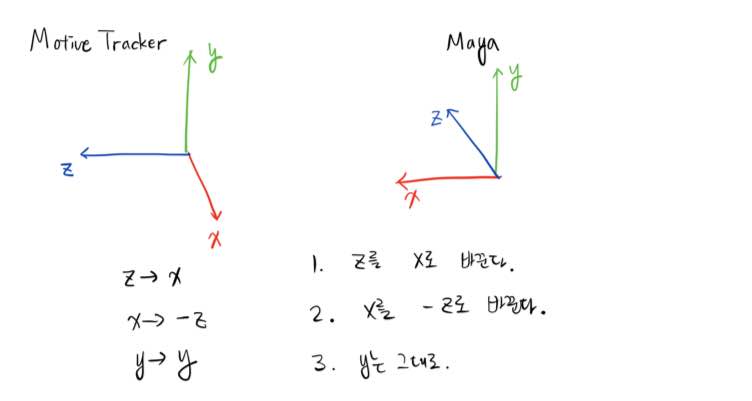 Motive Tracker
y
z
x
Maya
y
z
x
z → x
x → -z
y → y
1. z를 x로 바꾼다.
2. x를 -z로 바꾼다.
3. y는 그대로.